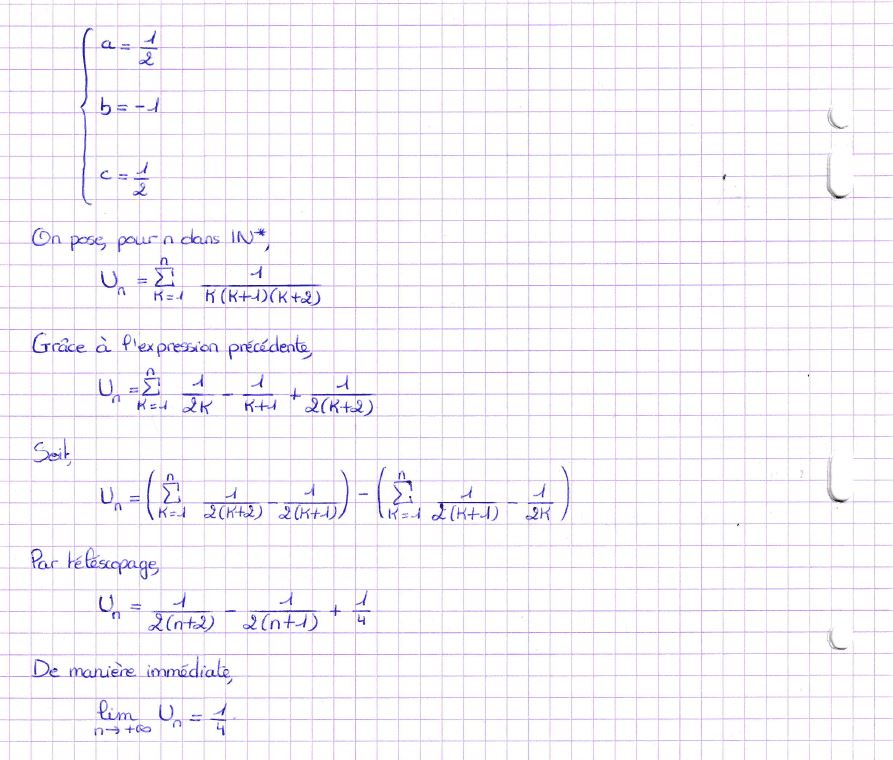 a = 1/2
b = -1
c = 1/2
On pose, pour n dans IN*,
U_n = Σ_{K=1}^{n} 1/(K(K+1)(K+2))
Grâce à l'expression précédente,
U_n = Σ_{K=1}^{n} 1/(2K) - 1/(K+1) + 1/(2(K+2))
Soit,
U_n = (Σ_{K=1}^{n} 1/(2(K+2)) - 1/(2(K+1))) - (Σ_{K=1}^{n} 1/(2(K+1)) - 1/(2K))
Par télescopage,
U_n = 1/(2(n+2)) - 1/(2(n+1)) + 1/4
De manière immédiate,
lim_{n→+∞} U_n = 1/4